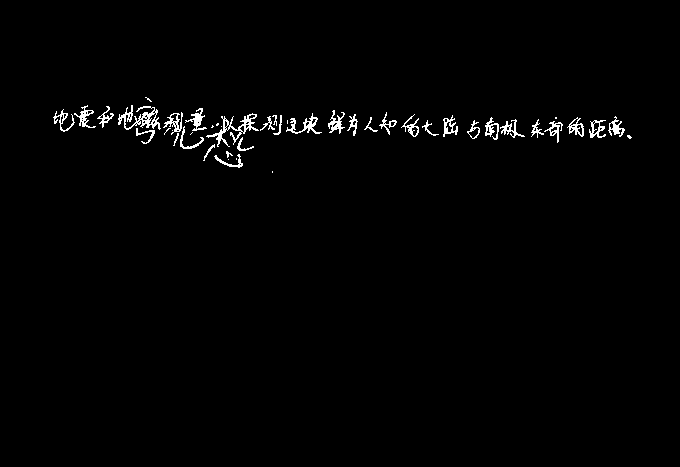 地震和地磁测量，以探测这块鲜为人知的大陆与南极东部的距离、